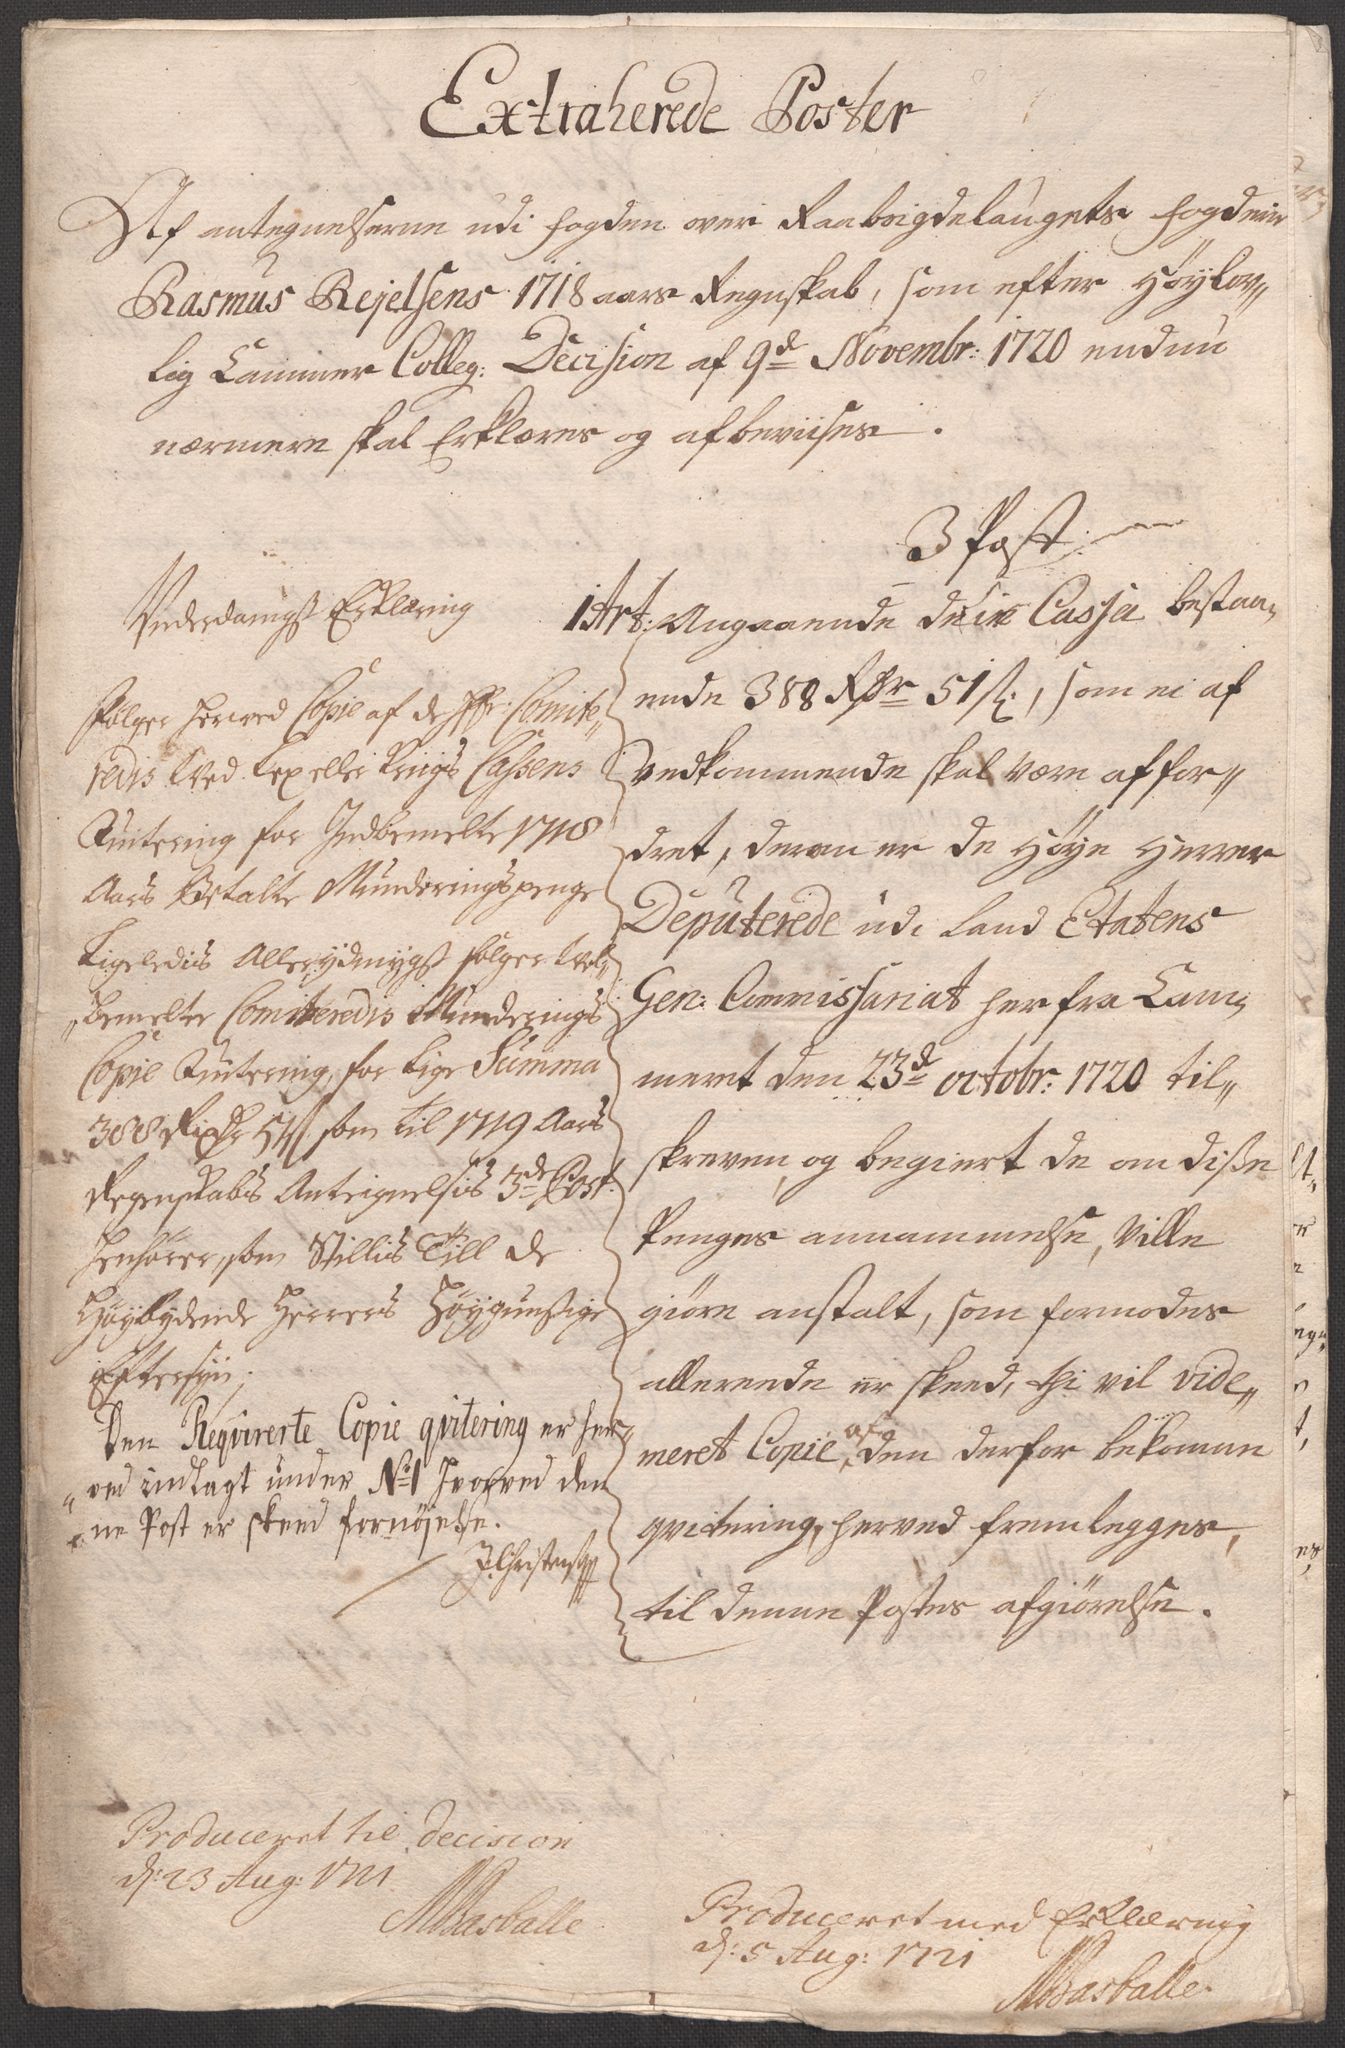 Extraherede Poster
Af antegnelserne udi fogden over Raabøigdelaugets fogderie
Rasmus Rejelsens 1718 aars Regnskab, som efter Høylov„
lig Cammer Colleg: Decision af 9d Novembr: 1720 endnu
nærmere skal Erklæres og afbeviises.
3 Post
1 Art: Angaaende de in Cassa bestaa„
ende 388 Rdr 51 s:, som ei af
vedkommende skal være affor„
dret, derom er de Høye Herrer
Deputerede udi Land Etatens
Gen: Commissariat her fra Cam„
meret den 23d octobr: 1720 til„
skreven, og begiert de om disse
Penges annammelse, Ville
giøre anstalt, som formodes
allerende er skeed, thi vil vide„
meret Copie af den derfor bekomne
qvitering, herved fremlegges,
til denne Postes afgiørelse.
Underdanigst Erklæring
følger herved Copie af de Hr: Comite„
redis ved Kings Cassens
Quitering for Indbemelte 1718
Aars Betalte Munderingspenge
Ligeledis Allerydmygst følger Vel„
„bemelte Comiteredis Munderings
Copie Quitering, for Lige Summa
388 Rixdr 51 s som til 1719 Aars
Regenskabs Anteignelsis 3de Post
henhører, som Stillis Till de
Høybydende Herrers Høygunstige
Eftersyn;
Den Reqvirerte Copie qvitering er her„
„ved indlagt under No 1 hvorved den
„ne Post er skeed fornøjelse.
J. Christensen
Produceret til decision
d: 23 Aug: 1721
MBasballe
Produceret med Erklæring
d: 5 Aug: 1721
MBasballe.